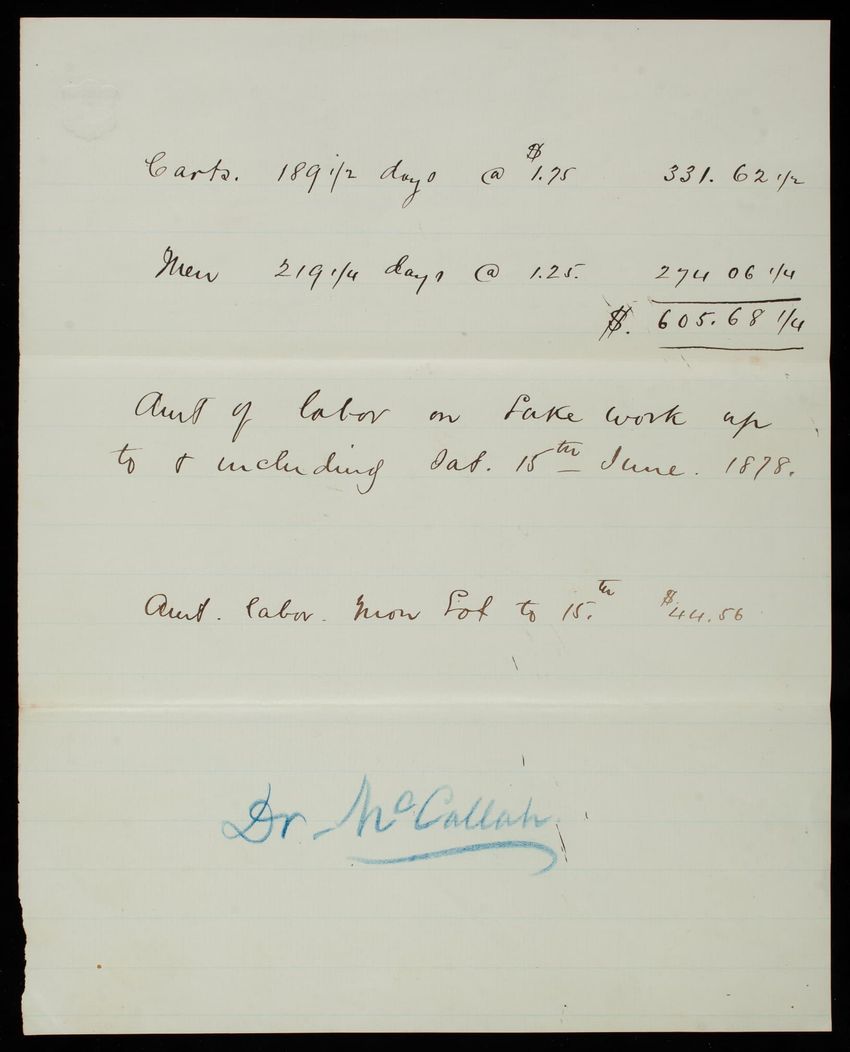 Carts. 189 1/2 days @ $1.75 331. 62 1/2
Men 219 1/4 days @ 1.25. 274 06 1/4
$. 605. 68 1/4
Amt of labor on Lake work up
to & including Sat. 15th June. 1878.
Amt. labor. Mon Lot to 15.th $44.56
Dr McCallah